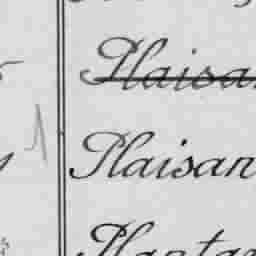 Plaisa
Plaisan
Planta